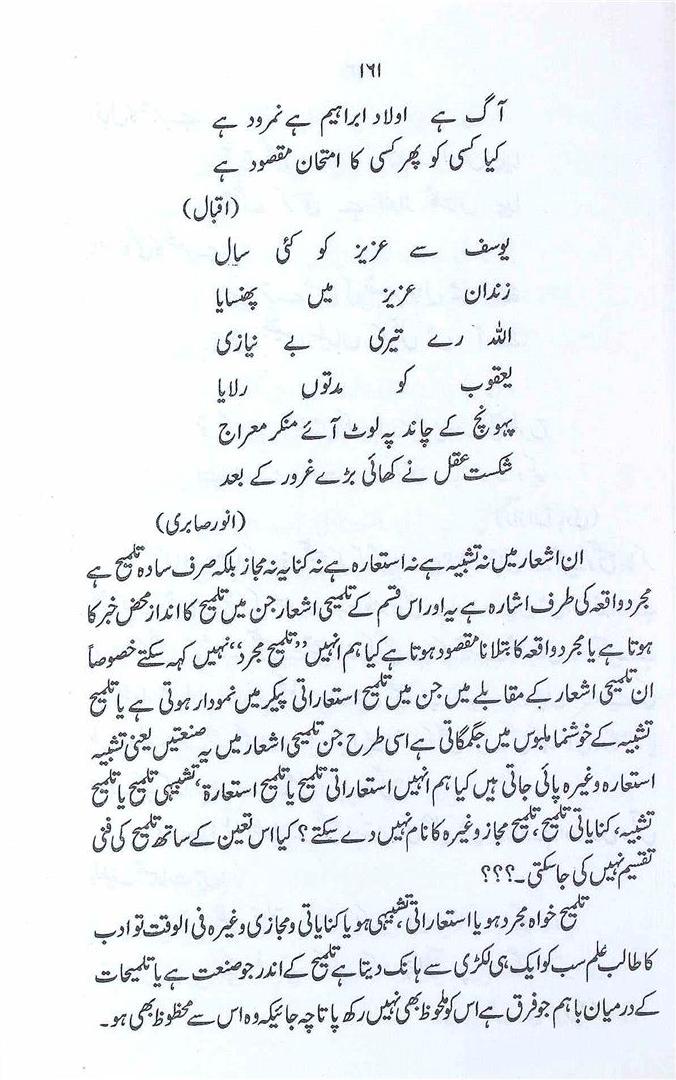 ۱۶۱
آگ ہے اولاد ابراہیم ہے نمرود ہے
کیا کسی کو پھر کسی کا امتحان مقصود ہے
(اقبال)
یوسف سے عزیز کو کئی سال
زندان عزیز میں پھنسایا
اللہ رے تیری بے نیازی
یعقوب کو مدتوں رلایا
پہونچ کے چاند پہ لوٹ آئے منکر معراج
شکست عقل نے کھائی بڑے غرور کے بعد
(انور صابری)
ان اشعار میں نہ تشبیہ ہے نہ استعارہ ہے نہ کنایہ نہ مجاز بلکہ صرف سادہ تلمیح ہے
مجرد واقعہ کی طرف اشارہ ہے یہ اور اس قسم کے تلمیحی اشعار جن میں تلمیح کا انداز محض خبر کا
ہوتا ہے یا مجرد واقعہ کا بتلانا مقصود ہوتا ہے کیا ہم انہیں ”تلمیح مجرد“ نہیں کہہ سکتے خصوصاً
ان تلمیحی اشعار کے مقابلے میں جن میں تلمیح استعاراتی پیکر میں نمودار ہوتی ہے یا تلمیح
تشبیہ کے خوشنما ملبوس میں جگمگاتی ہے اسی طرح جن تلمیحی اشعار میں یہ صنعتیں یعنی تشبیہ
استعارہ وغیرہ پائی جاتی ہیں کیا ہم انہیں استعاراتی تلمیح یا تلمیح استعارۃ، تشبیہی تلمیح یا تلمیح
تشبیہ، کنایاتی تلمیح، تلمیح مجاز وغیرہ کا نام نہیں دے سکتے؟ کیا اس تعین کے ساتھ تلمیح کی فنی
تقسیم نہیں کی جاسکتی۔؟؟؟
تلمیح خواہ مجرد ہو یا استعاراتی، تشبیہی ہو یا کنایاتی و مجازی وغیرہ فی الوقت تو ادب
کا طالب علم سب کو ایک ہی لکڑی سے ہانک دیتا ہے تلمیح کے اندر جو صنعت ہے یا تلمیحات
کے درمیان باہم جو فرق ہے اس کو ملحوظ بھی نہیں رکھ پاتا چہ جائیکہ وہ اس سے محظوظ بھی ہو۔